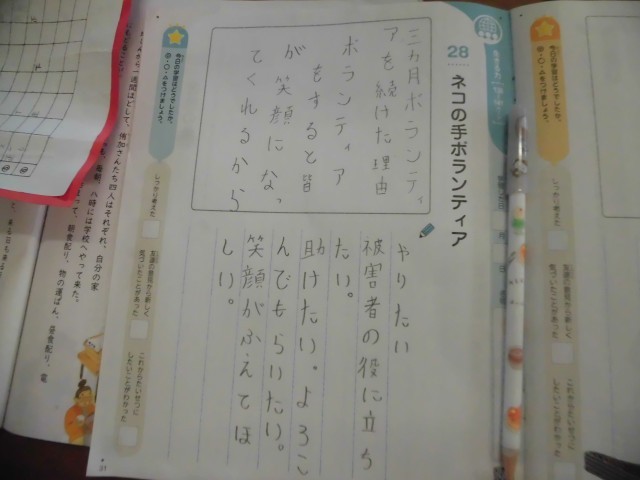 28 ネコの手ボランティア
三カ月ボランティ
アを続けた理由
ボランティア
をすると皆
が笑顔になっ
てくれるから
やりたい
被害者の役に立ち
たい。
助けたい。よろこ
んでもらいたい。
笑顔がふえてほ
しい。
今日の学習はどうでしたか。
◎・○・△をつけましょう。
しっかり考えた
友達の意見から新しく
気づいたことがあった
これからたいせつに
したいことがわかった
31
今日の学習はどうでしたか。
◎・○・△をつけましょう。
しっかり考えた
友達の意見から新しく
気づいたことがあった
一週間ほどして、
さんたち四人はそれぞれ、自分の家
八時には学校へやって来た。
朝食配り、物の運ぱん、昼食配り、